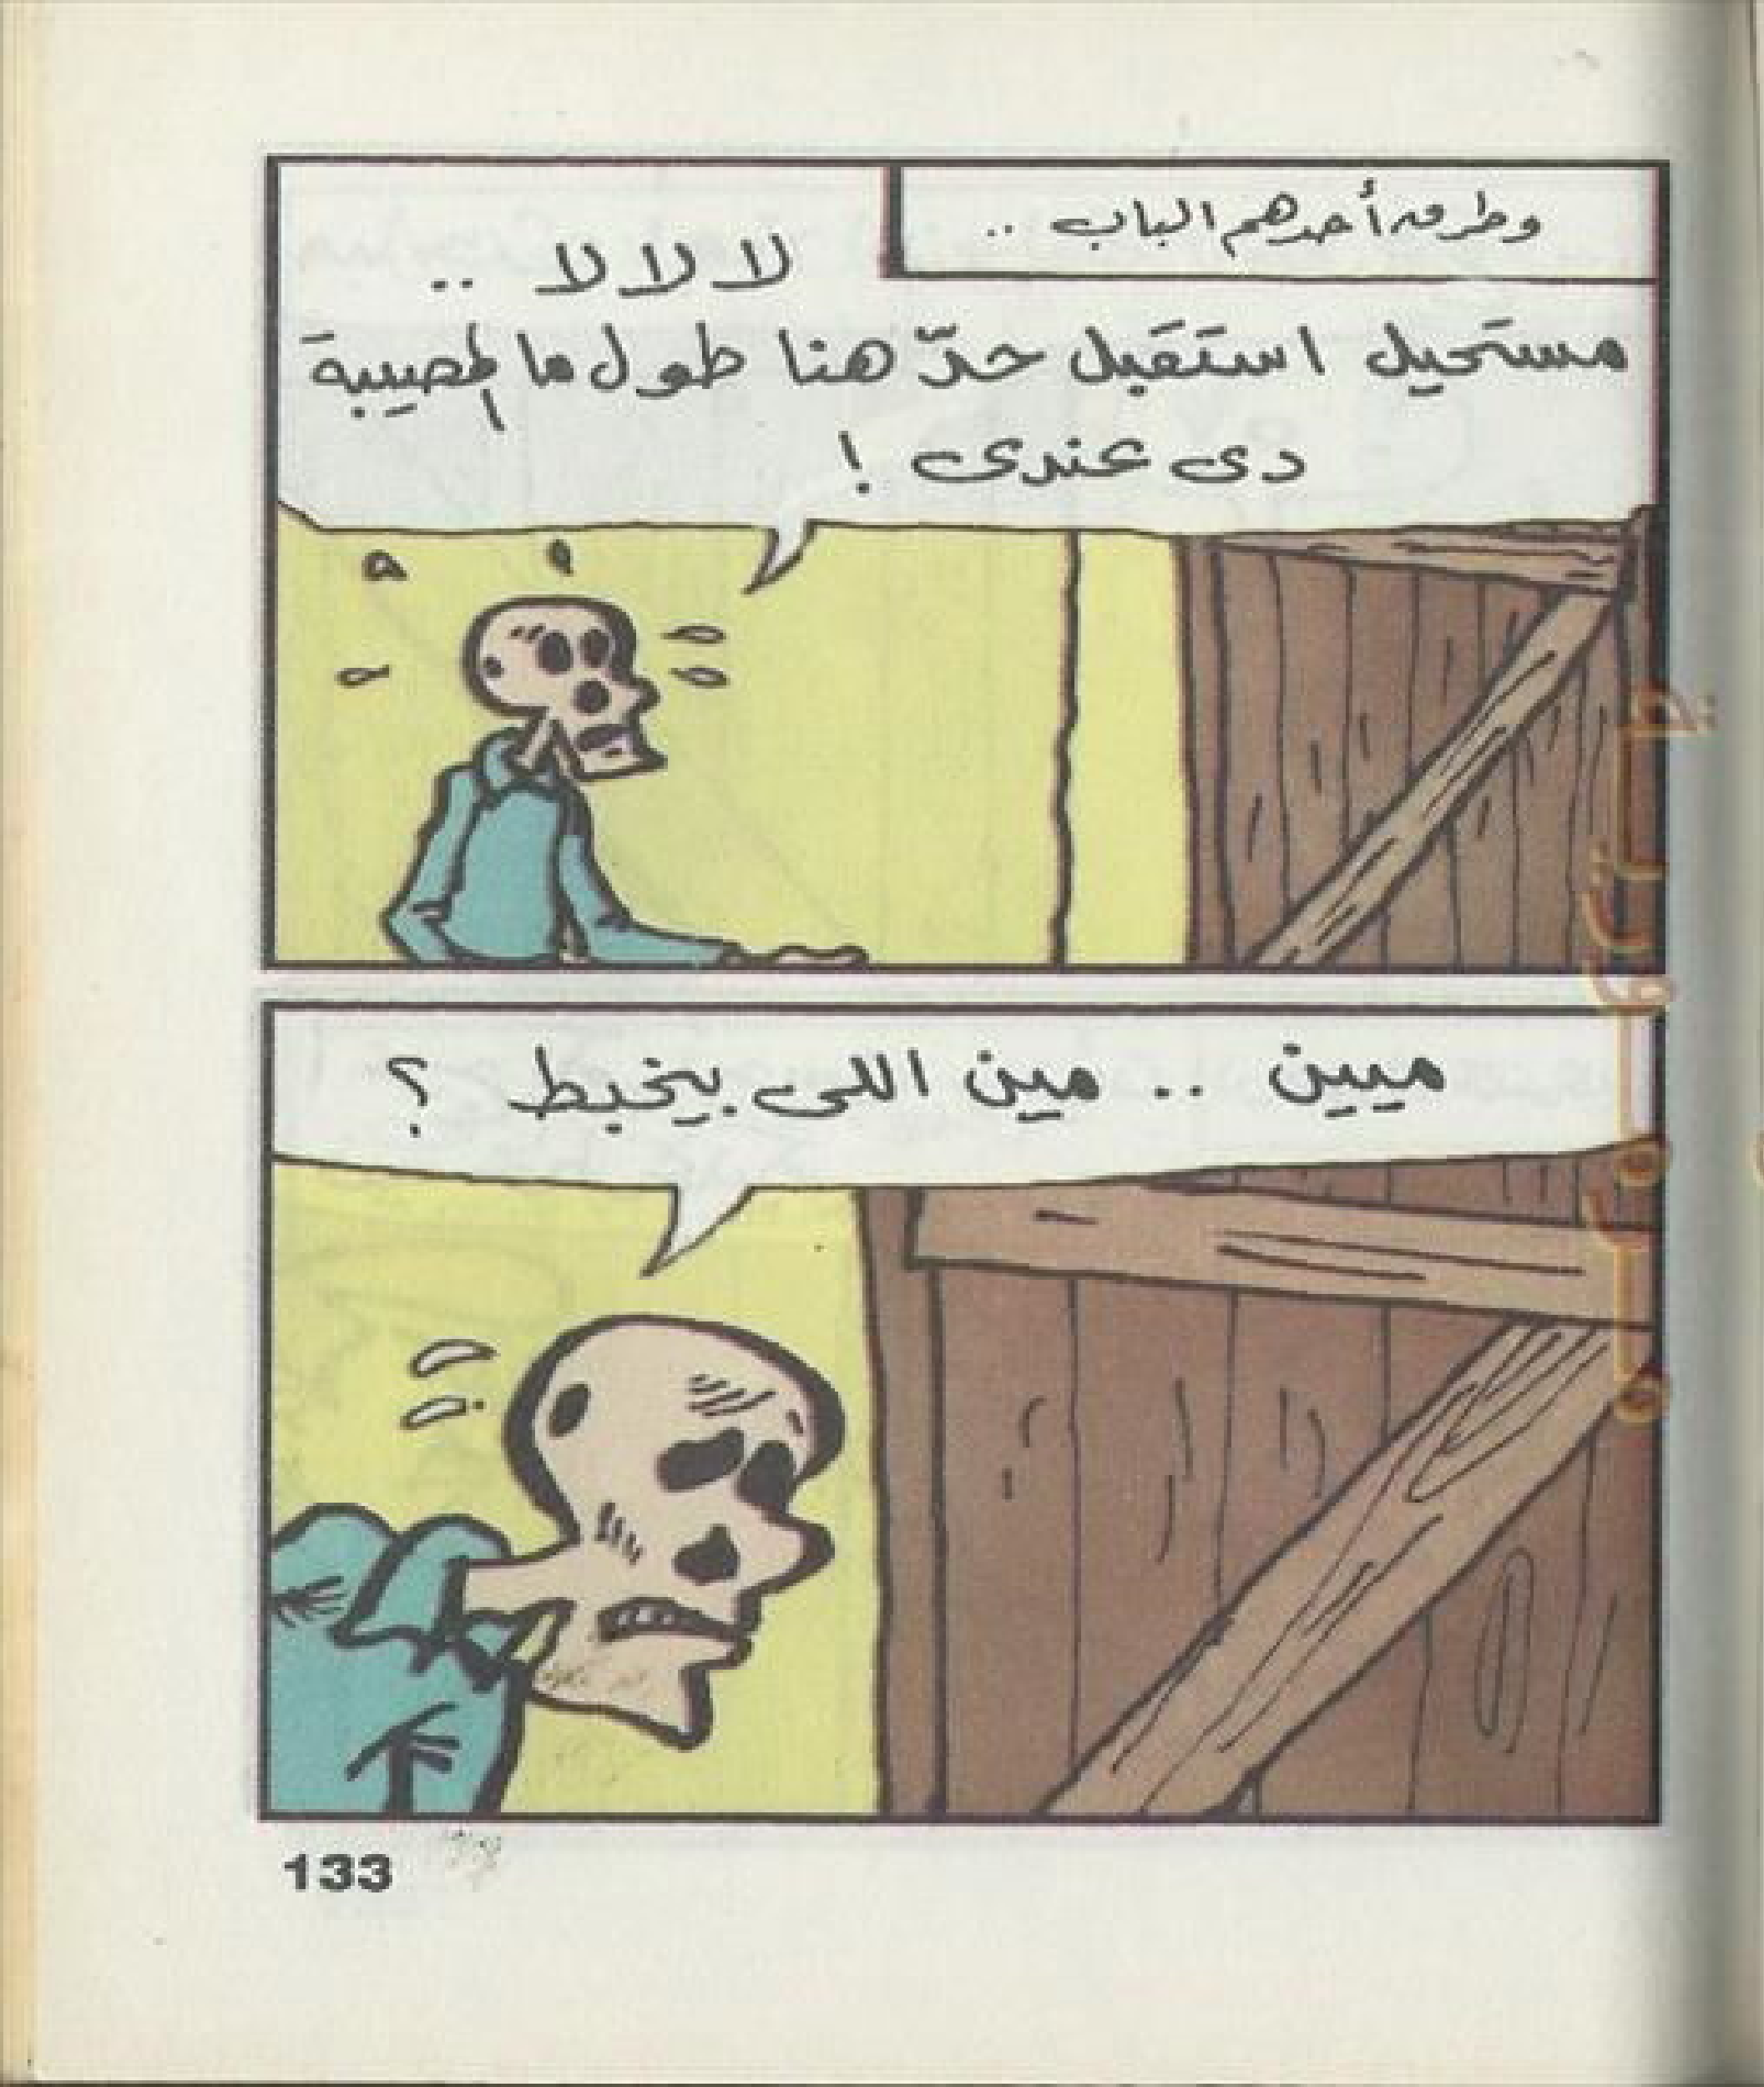 وطرق أحدهم الباب ..
لا لا لا ..
مستحيل استقبل حدّ هنا طول ما المصيبة
دى عندى !
ميين .. مين اللى بيخبط ؟
133